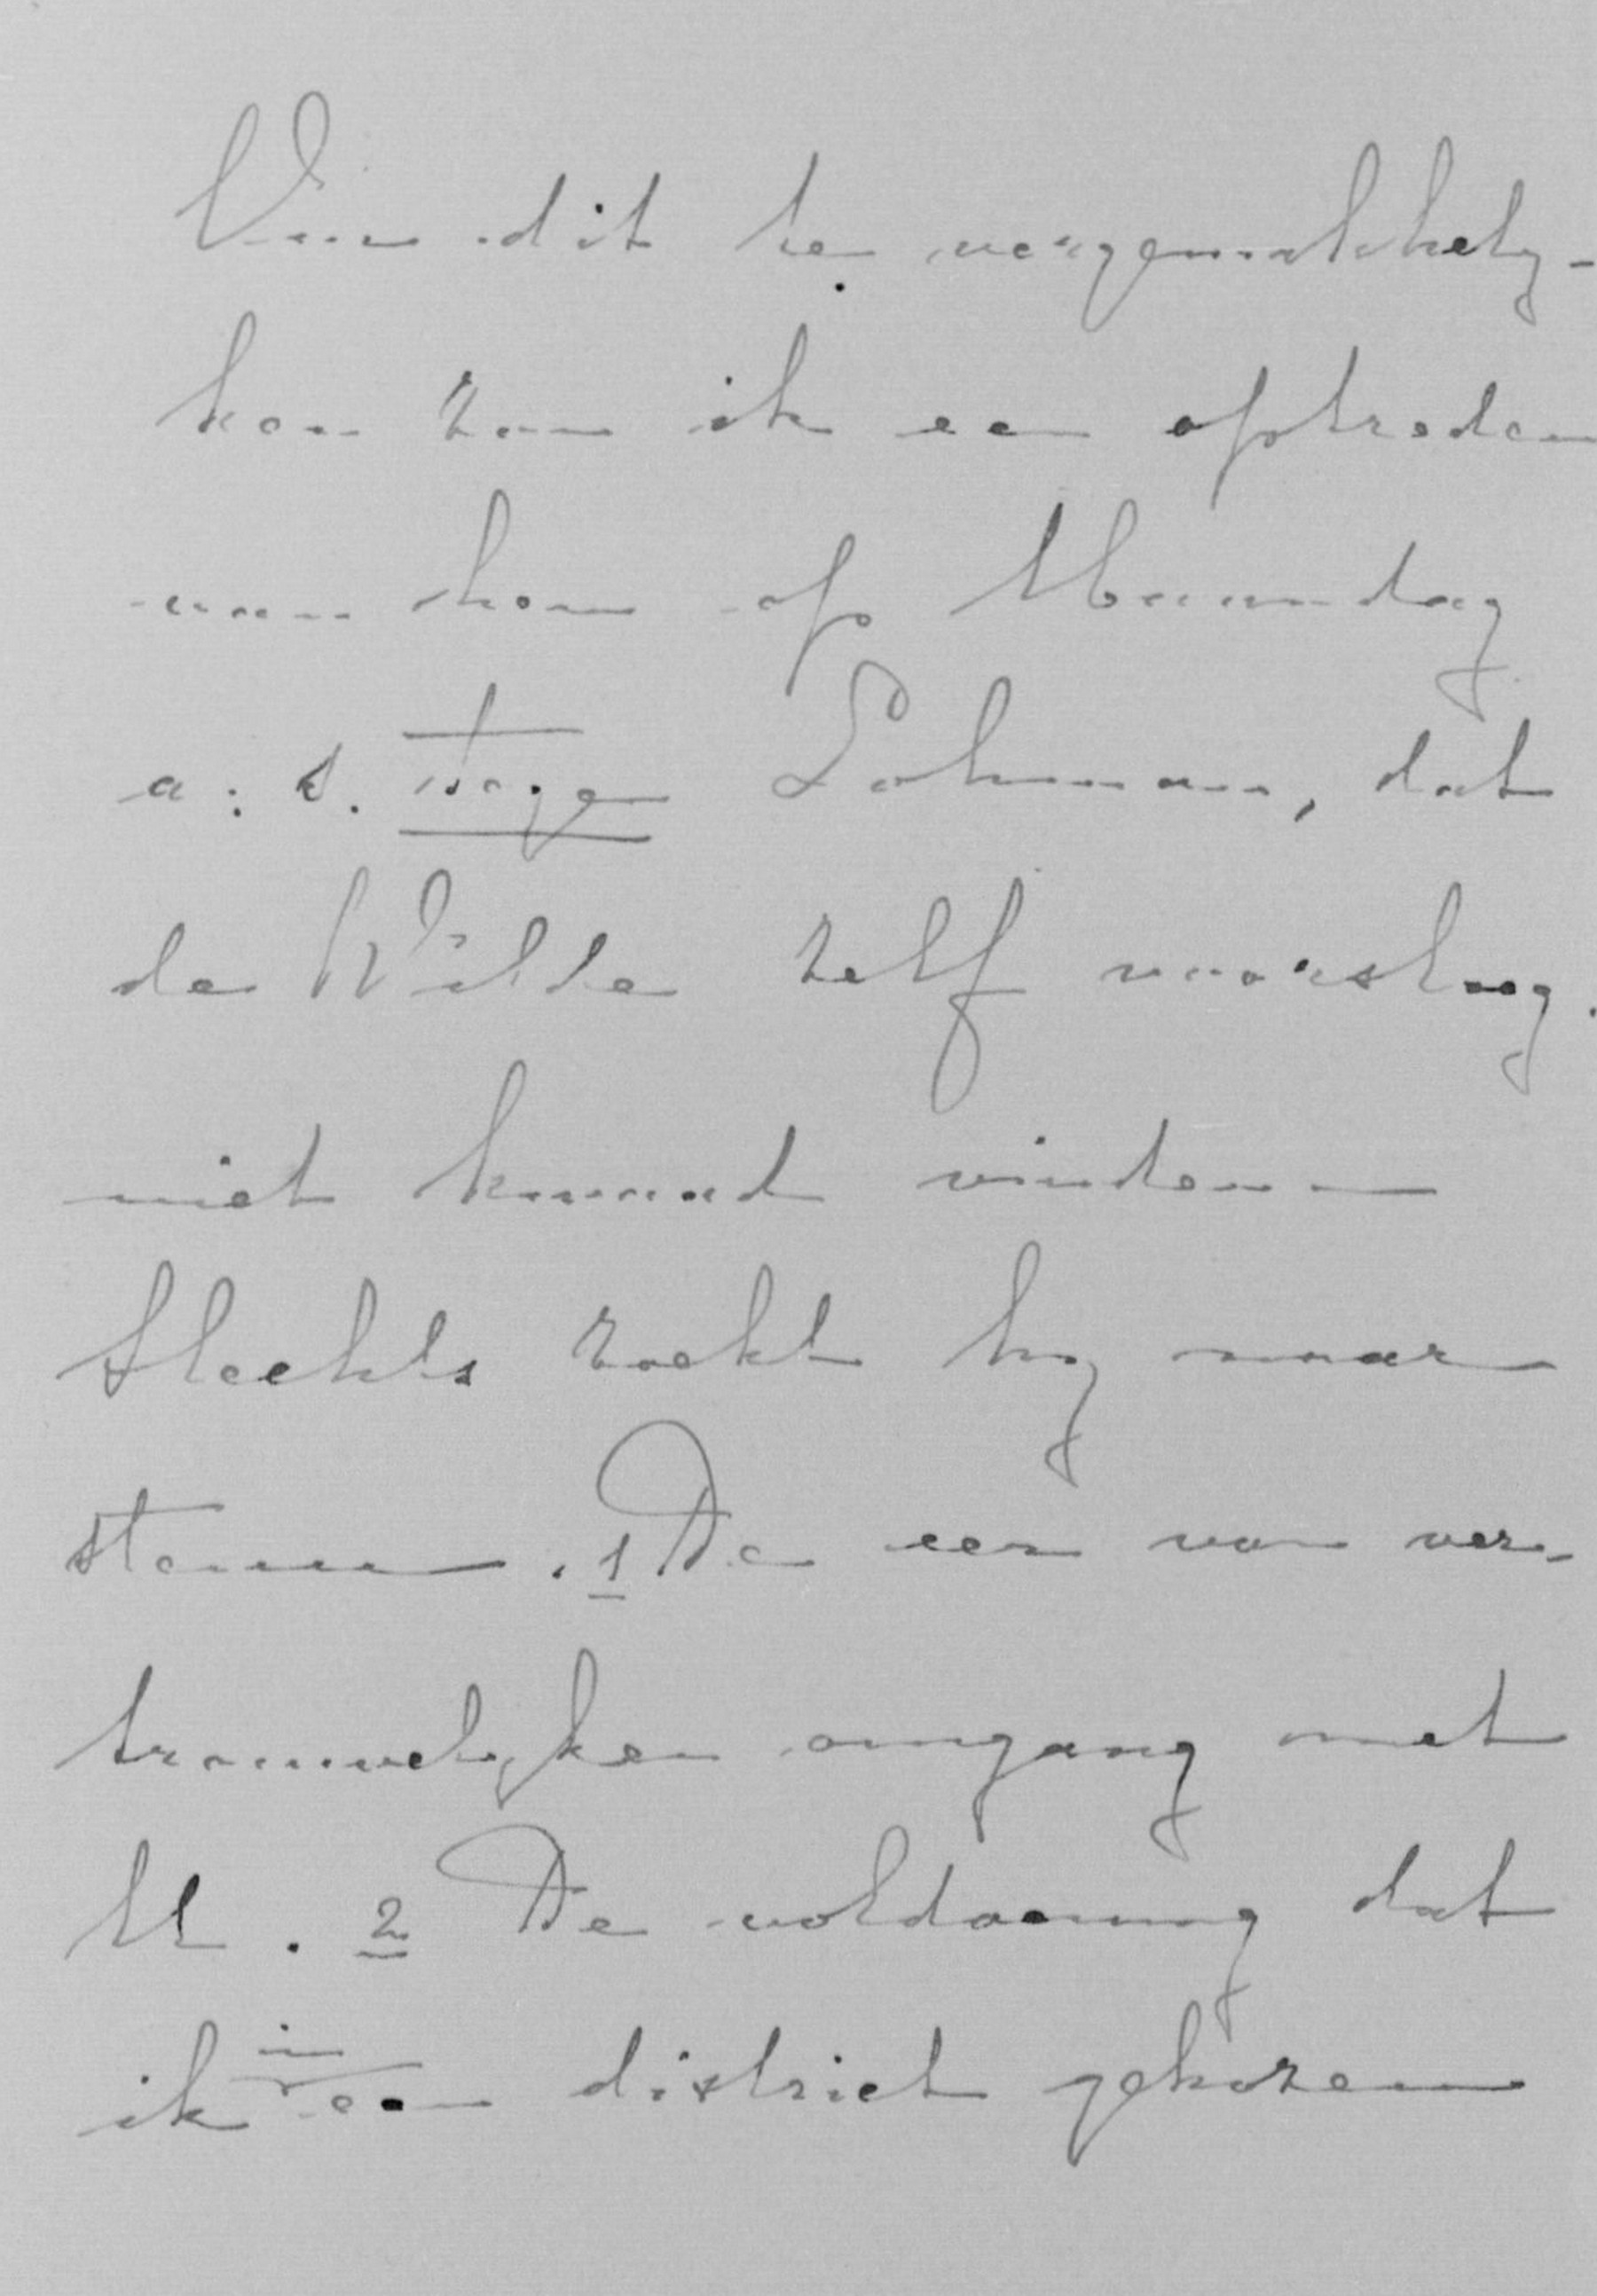 Om dit te vergemakkely-
ken zou ik een optreden
van hem op Maandag
a: s. tegen Lohman, dat
de Wilde zelf voorsloeg.
niet kwaad vinden
Slechts zoekt hy naar
steun. 1 De eer van ver-
trouwelyken omgang met
U. 2 De voldoening dat
ik in een district gekozen